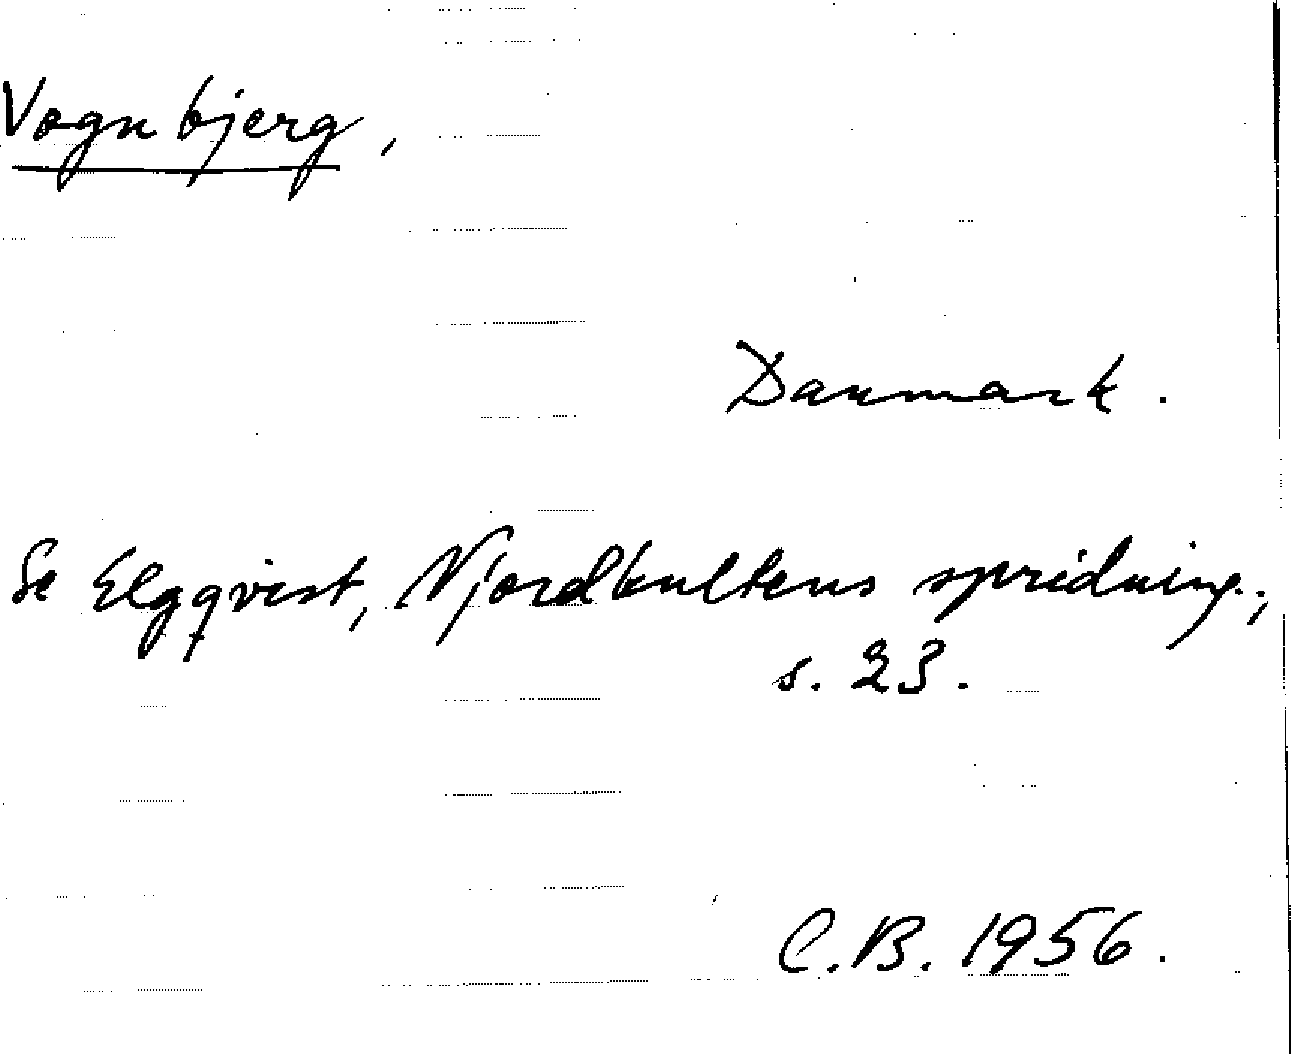 Vognbjerg,
Danmark.
Se Elgqvist, Njordkultens spridning.,
s. 23.
C.B. 1956.